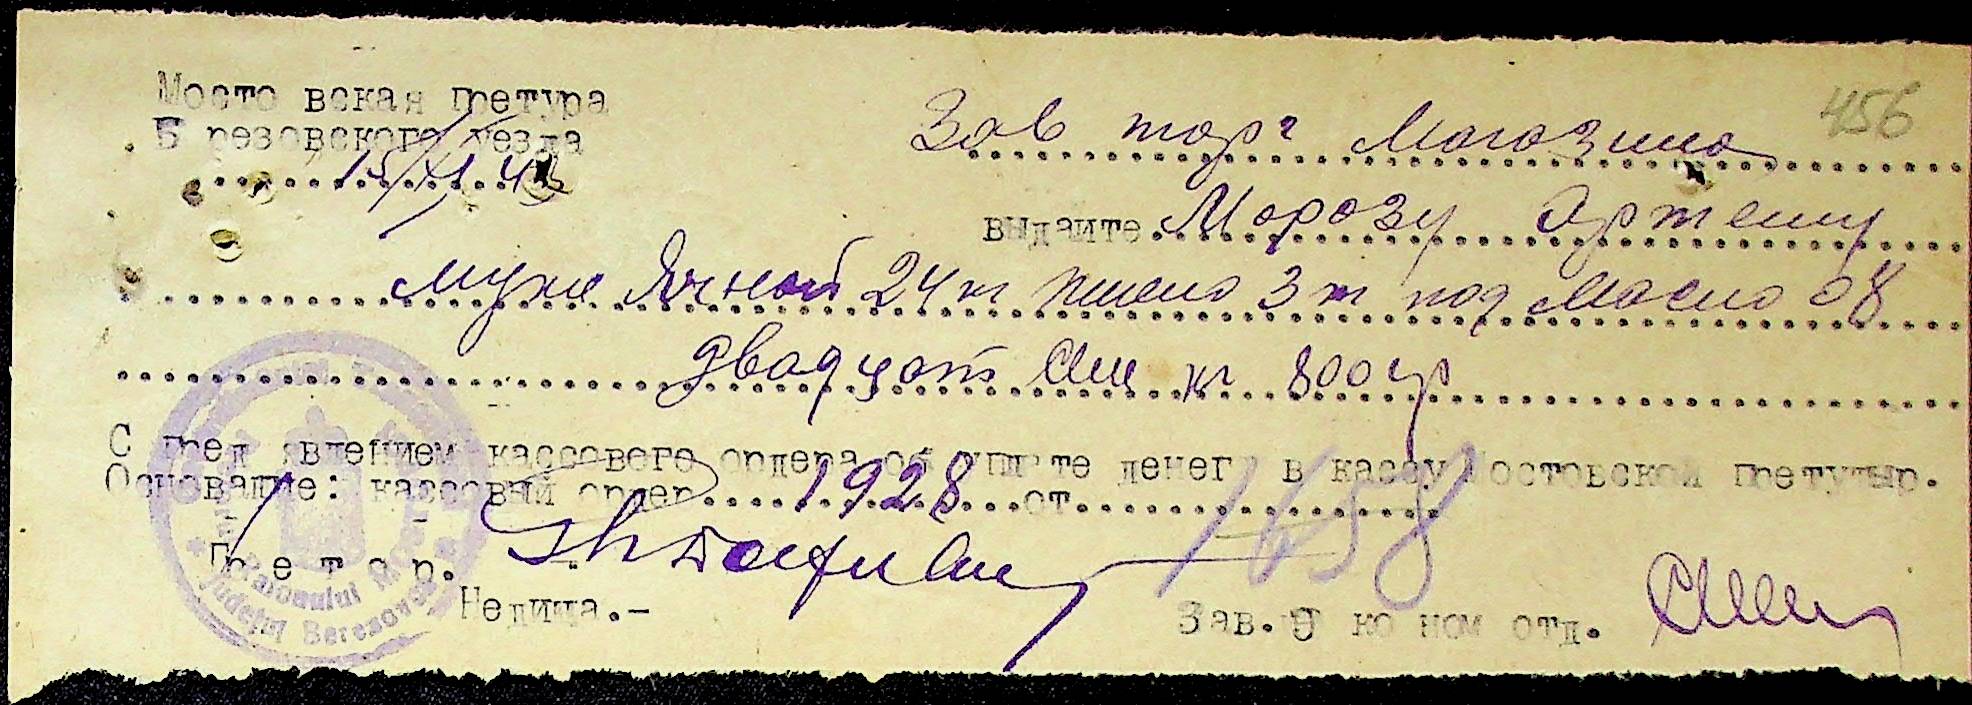 Мосто вская претура
Б резовского уезда
15/XI.43
456
Зав торг Магазина
выдайте Морозу Артему
мука Ячной 24 кг пшено 3 т под Масло 08
двадцат кг 800 гр
С пред явлением кассового ордера об уплате денег в кассу Мостовской претутыр.
Основание: кассовый ордер....1928...от
1658
Пр е т о р.
Недича.-
Зав. Э ко ном отд.
Raionului
Județul Berezovca